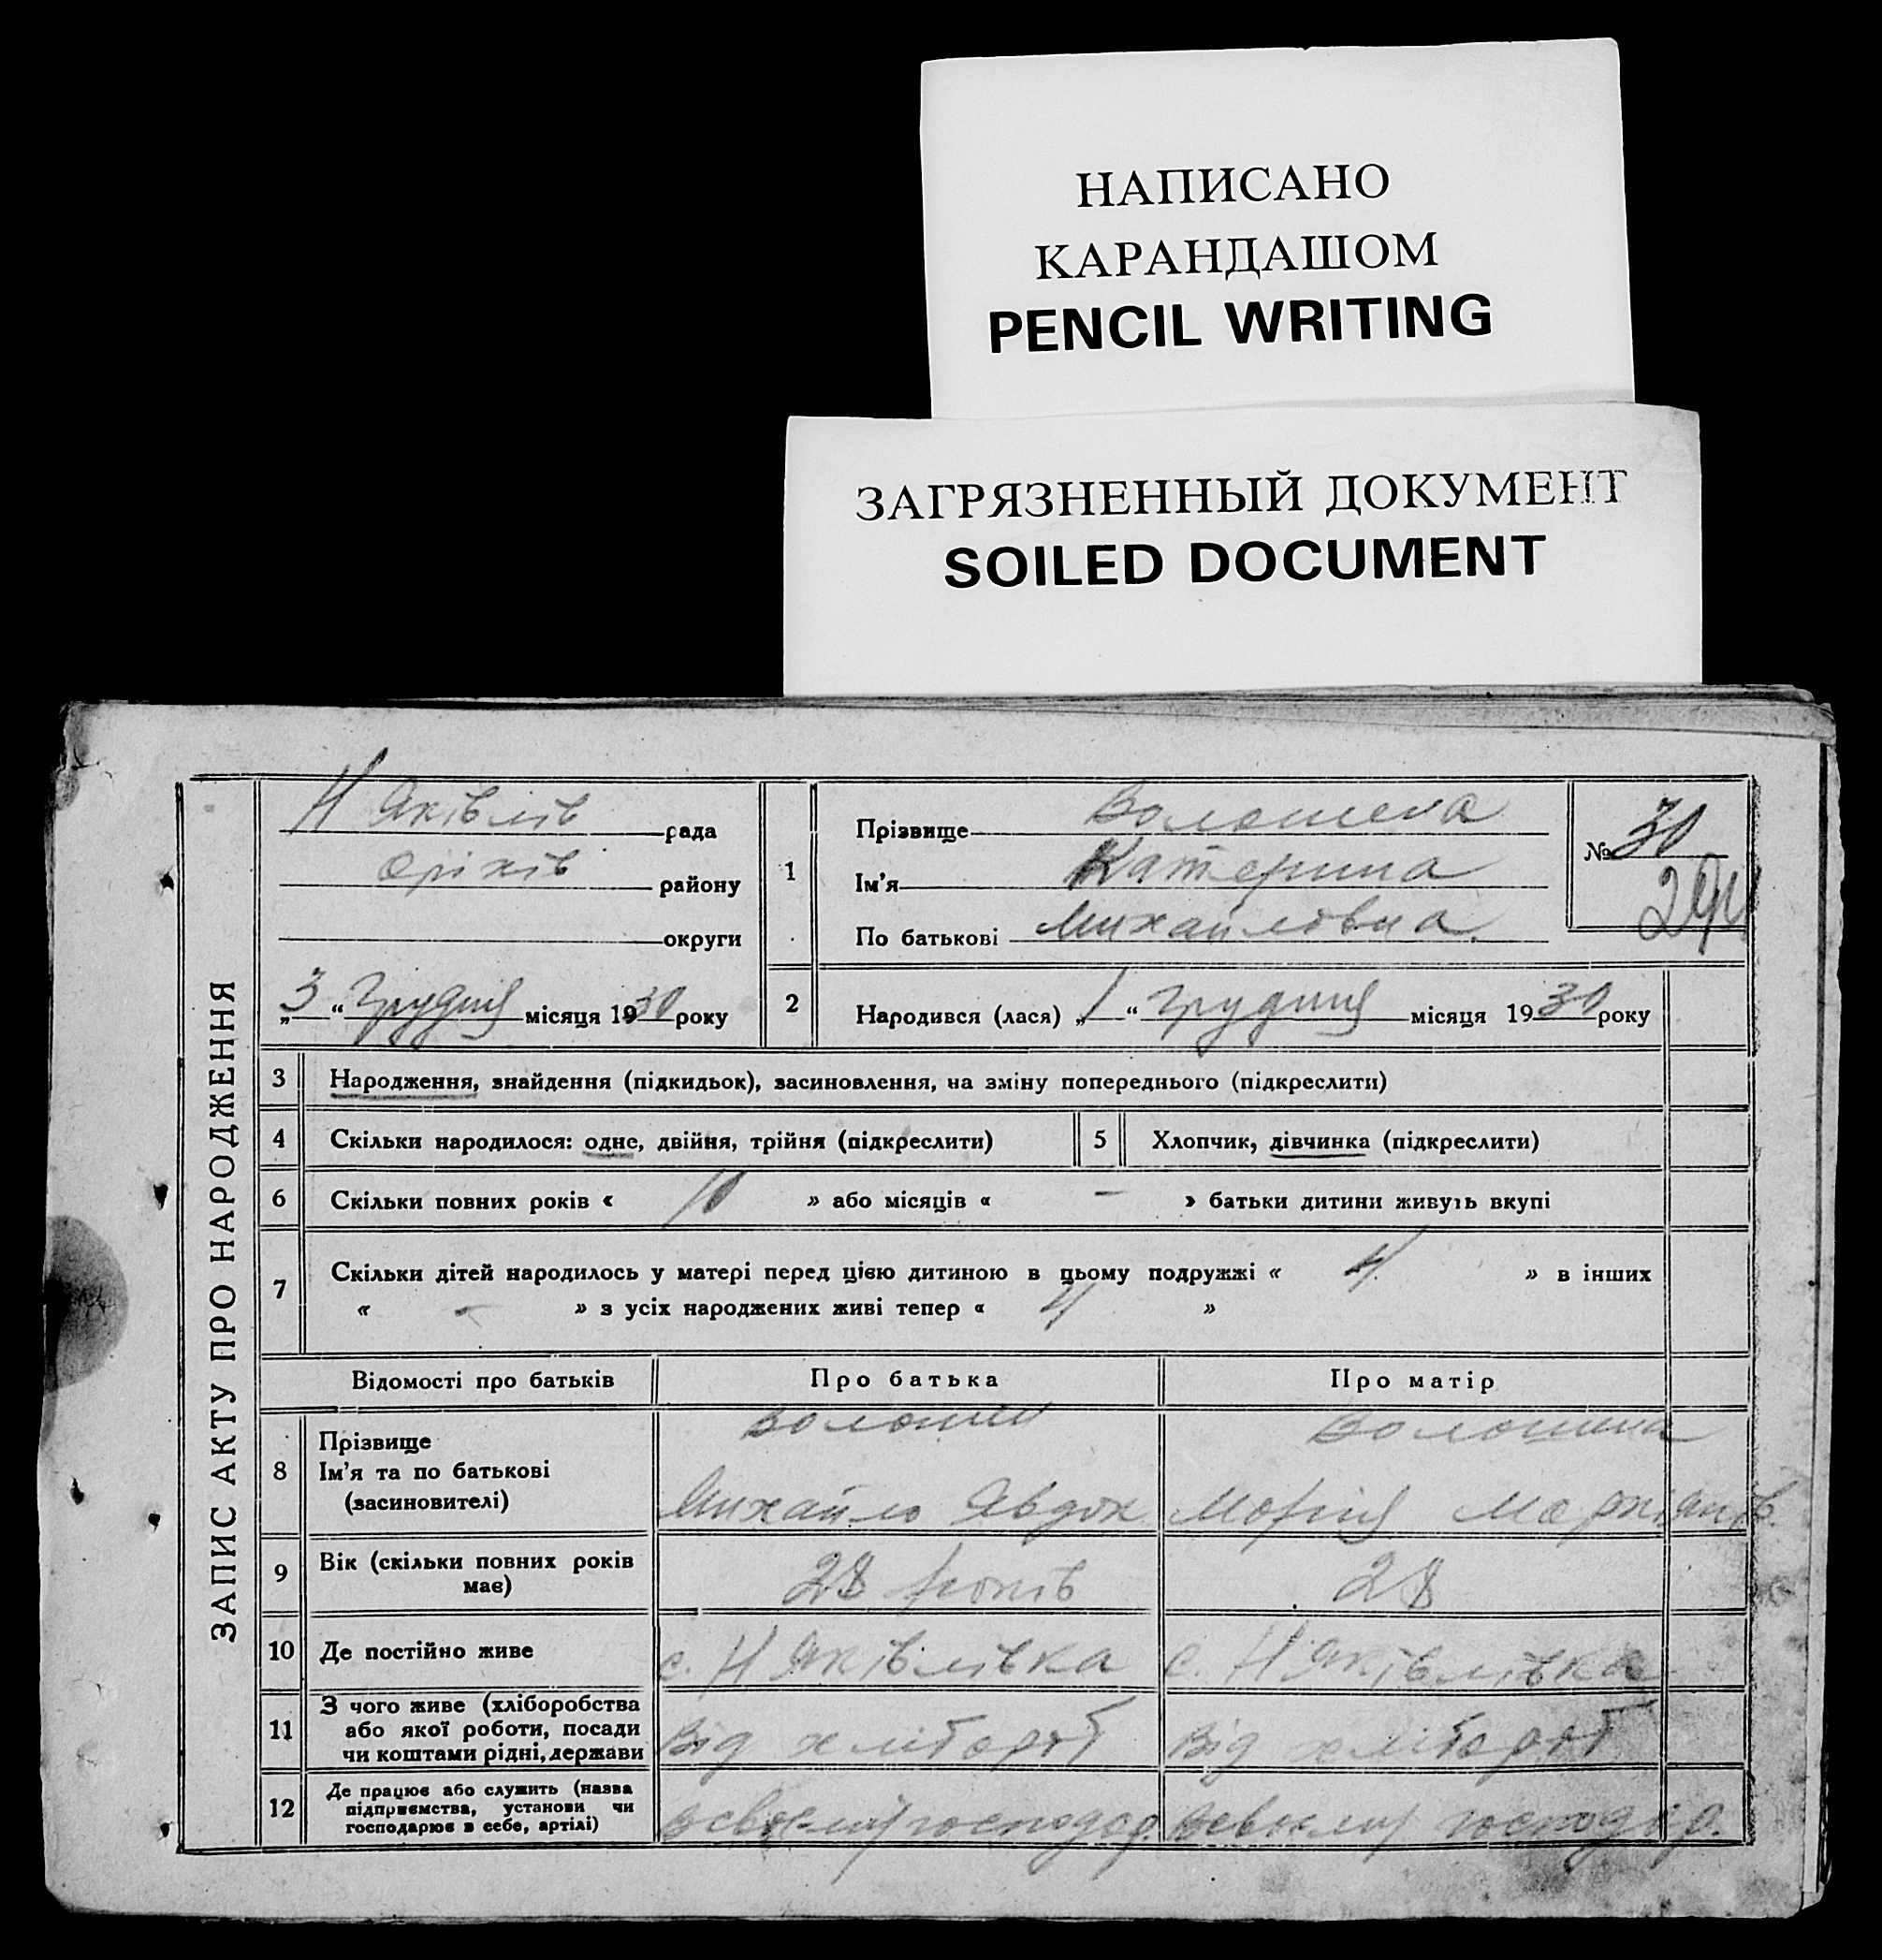 НАПИСАНО
КАРАНДАШОМ
PENCIL WRITING
ЗАГРЯЗНЕННЫЙ ДОКУМЕНТ
SOILED DOCUMENT
ЗАПИС АКТУ ПРО НАРОДЖЕННЯ
Н Яківлів рада
Оріхів району
округи
„3“ Грудня місяця 1930 року
1
Прізвище Волошена
Ім'я Катерина
По батькові Михайловна
№ 30
2 Народився (лася) „1“ Грудня місяця 1930 року
3 Народження, знайдення (підкидьок), засиновлення, на зміну попереднього (підкреслити)
4 Скільки народилося: одне, двійня, трійня (підкреслити) 5 Хлопчик, дівчинка (підкреслити)
6 Скільки повних років « 10 » або місяців « – » батьки дитини живуть вкупі
7 Скільки дітей народилось у матері перед цією дитиною в цьому подружжі « 4 » в інших
« - » з усіх народжених живі тепер « 4 »
Відомості про батьків Про батька Про матір
8 Прізвище Волошин Волошина
Ім'я та по батькові
(засиновителі) Михайло Явдок. Марія
9 Вік (скільки повних років має) 28 років 28
10 Де постійно живе с. Н Яківлівка с. Н Яківлівка
11 З чого живе (хліборобства
або якої роботи, посади Від хлібороб Від хлібороб
чи коштами рідні, держави
12 Де працює або служить (назва
підприємства, установи чи
господарює в себе, артілі) всвоєму господар. всвоєму господар.